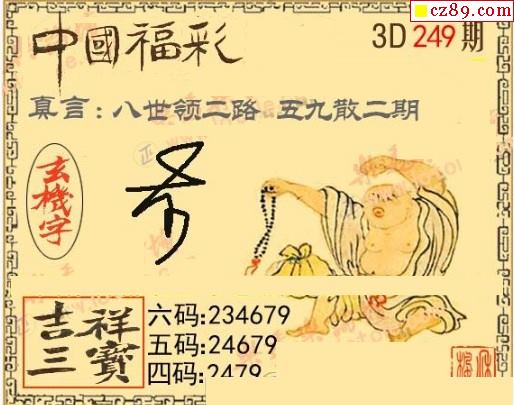 cz89.com
中國福彩
3D 249 期
真言：八世领二路 五九散二期
玄機字
吉祥三寶
六码:234679
五码:24679
四码:2479